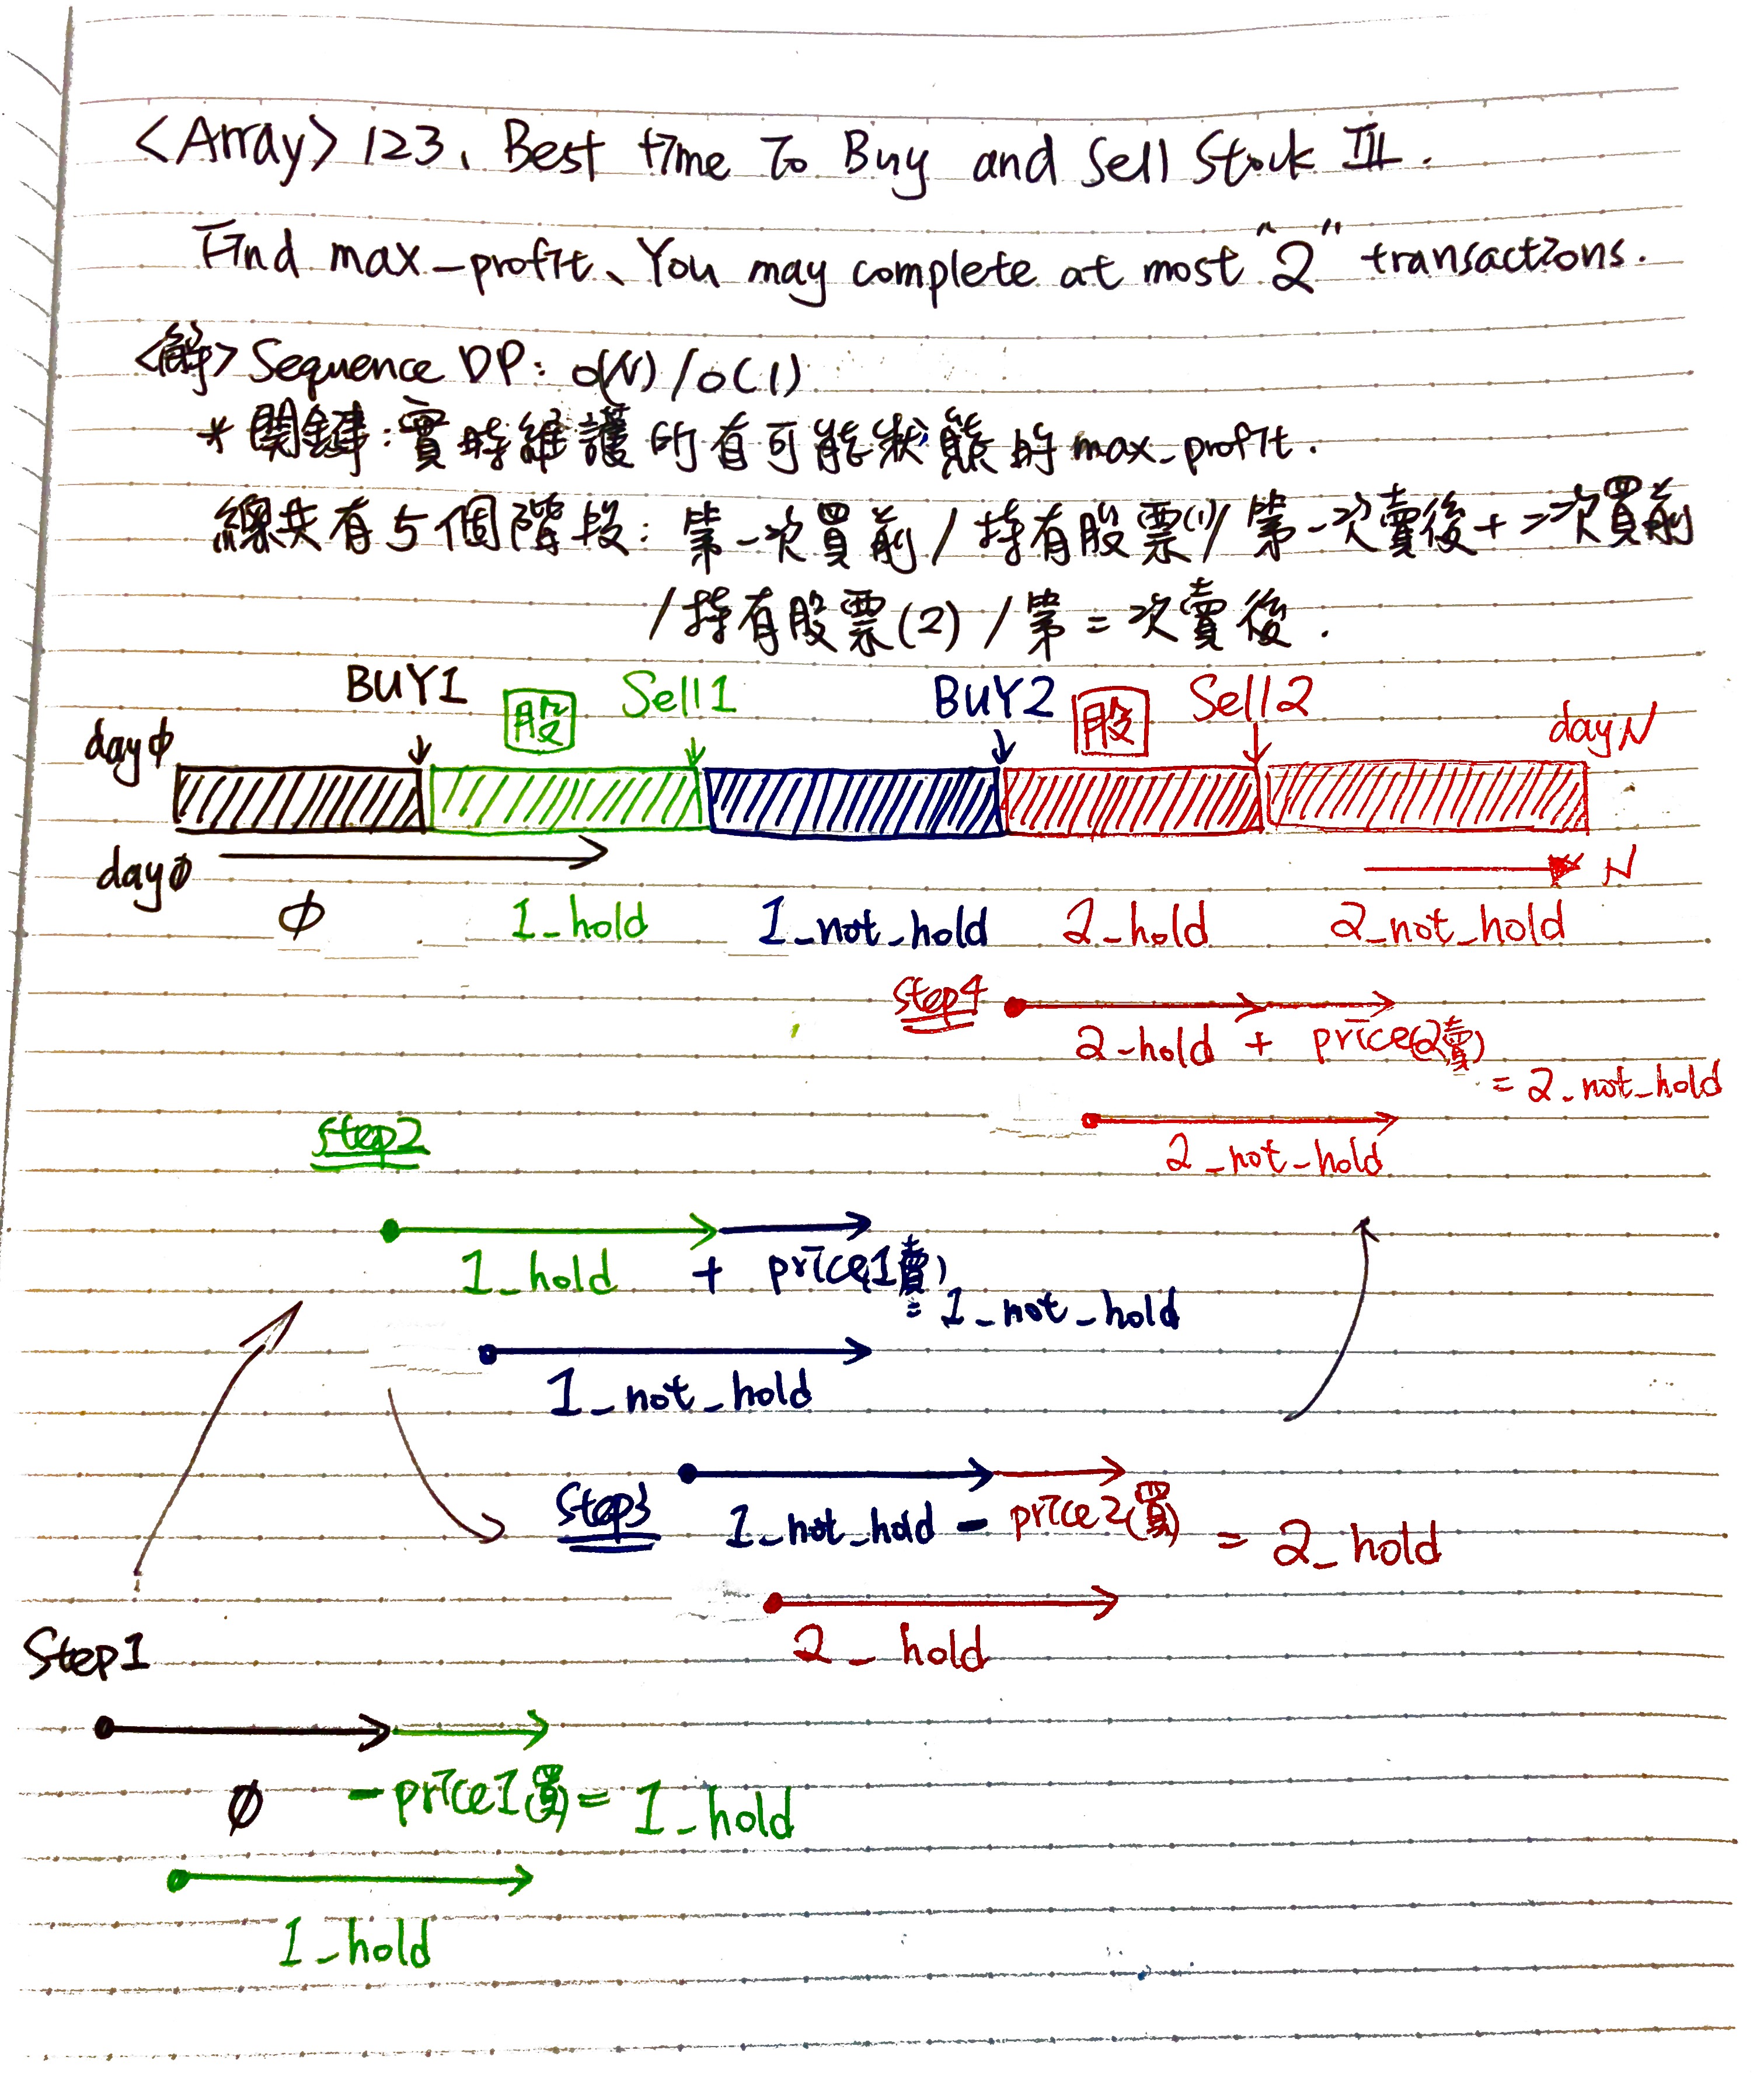 <Array> 123、Best time To Buy and Sell Stock III.
Find max_profit、You may complete at most "2" transactions.
<解> Sequence DP: O(N) / O(1)
* 関鍵:實時維護所有可能狀態的 max_profit.
總共有5個階段: 第一次買前 / 持有股票(1) / 第一次賣後 + 二次買前
/ 持有股票(2) / 第二次賣後.
BUY1 股 Sell1 BUY2 股 Sell2 day N
day ϕ
day ϕ N
ϕ 1_hold 1_not_hold 2_hold 2_not_hold
Step4
2_hold + price(2賣)
= 2_not_hold
Step2
2_not_hold
1_hold + price(1賣)
= 1_not_hold
1_not_hold
Step3 1_not_hold - price2(買) = 2_hold
2_hold
Step1
ϕ - price1(買) = 1_hold
1_hold